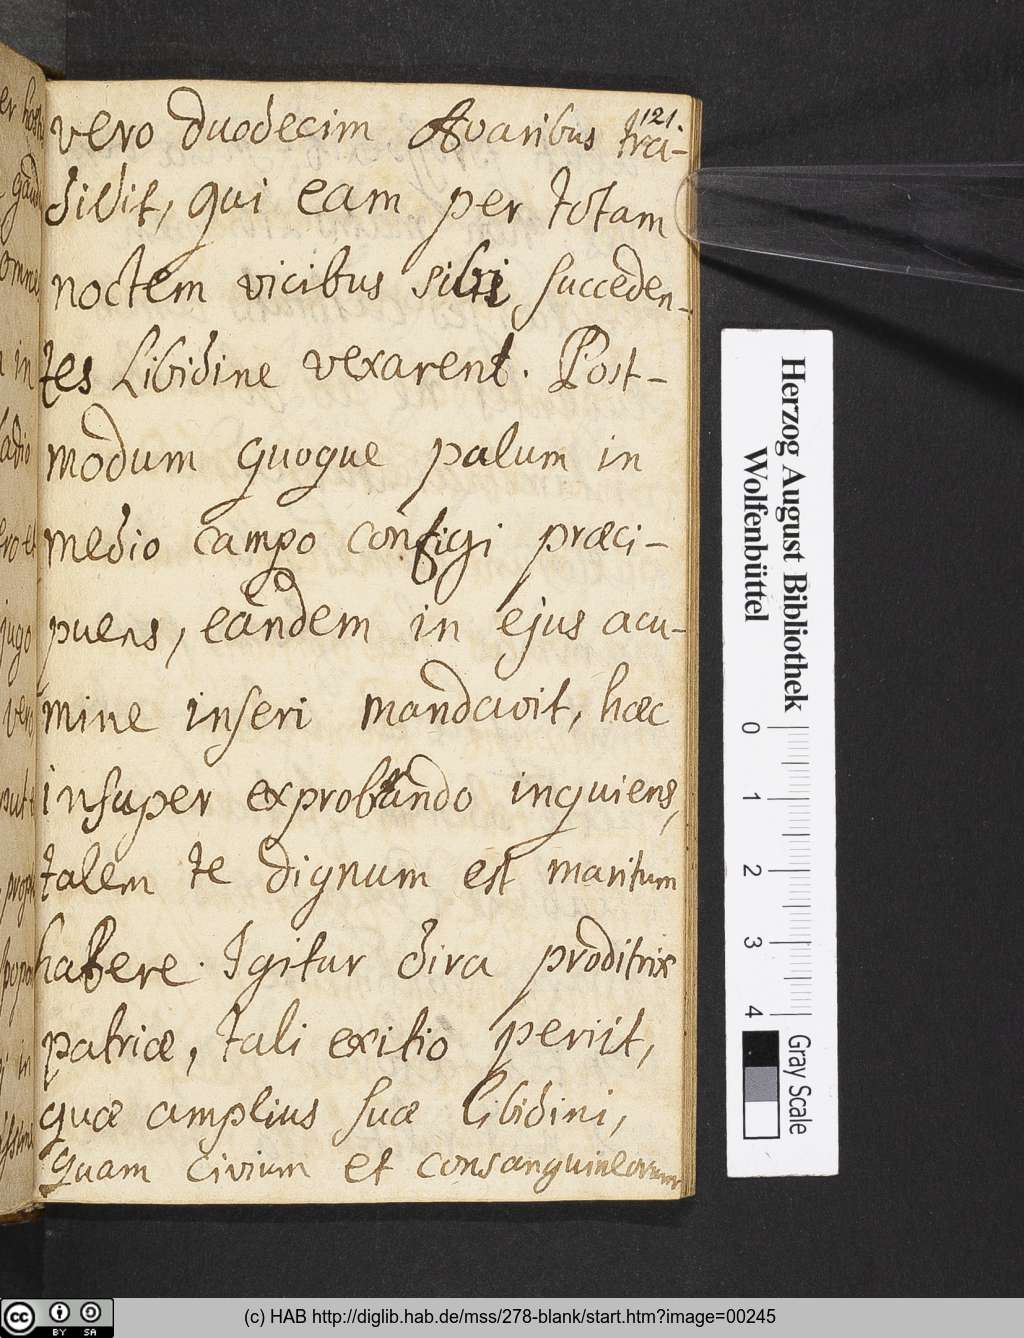 121.
vero duodecim Avaribus tra-
didit, qui eam per totam
noctem vicibus sibi succeden-
tes libidine vexarent. Post-
modum quoque palum in
medio campo configi præci-
puens, eandem in ejus acu-
mine inseri mandavit, hæc
insuper exprobando inquiens,
talem te dignum est maritum
habere. Igitur dira proditrix
patriæ, tali exitio periit,
quæ amplius suæ libidini,
quam civium et consanguineorum
Herzog August Bibliothek
Wolfenbüttel
0 1 2 3 4
Gray Scale
cc BY SA
(c) HAB http://diglib.hab.de/mss/278-blank/start.htm?image=00245